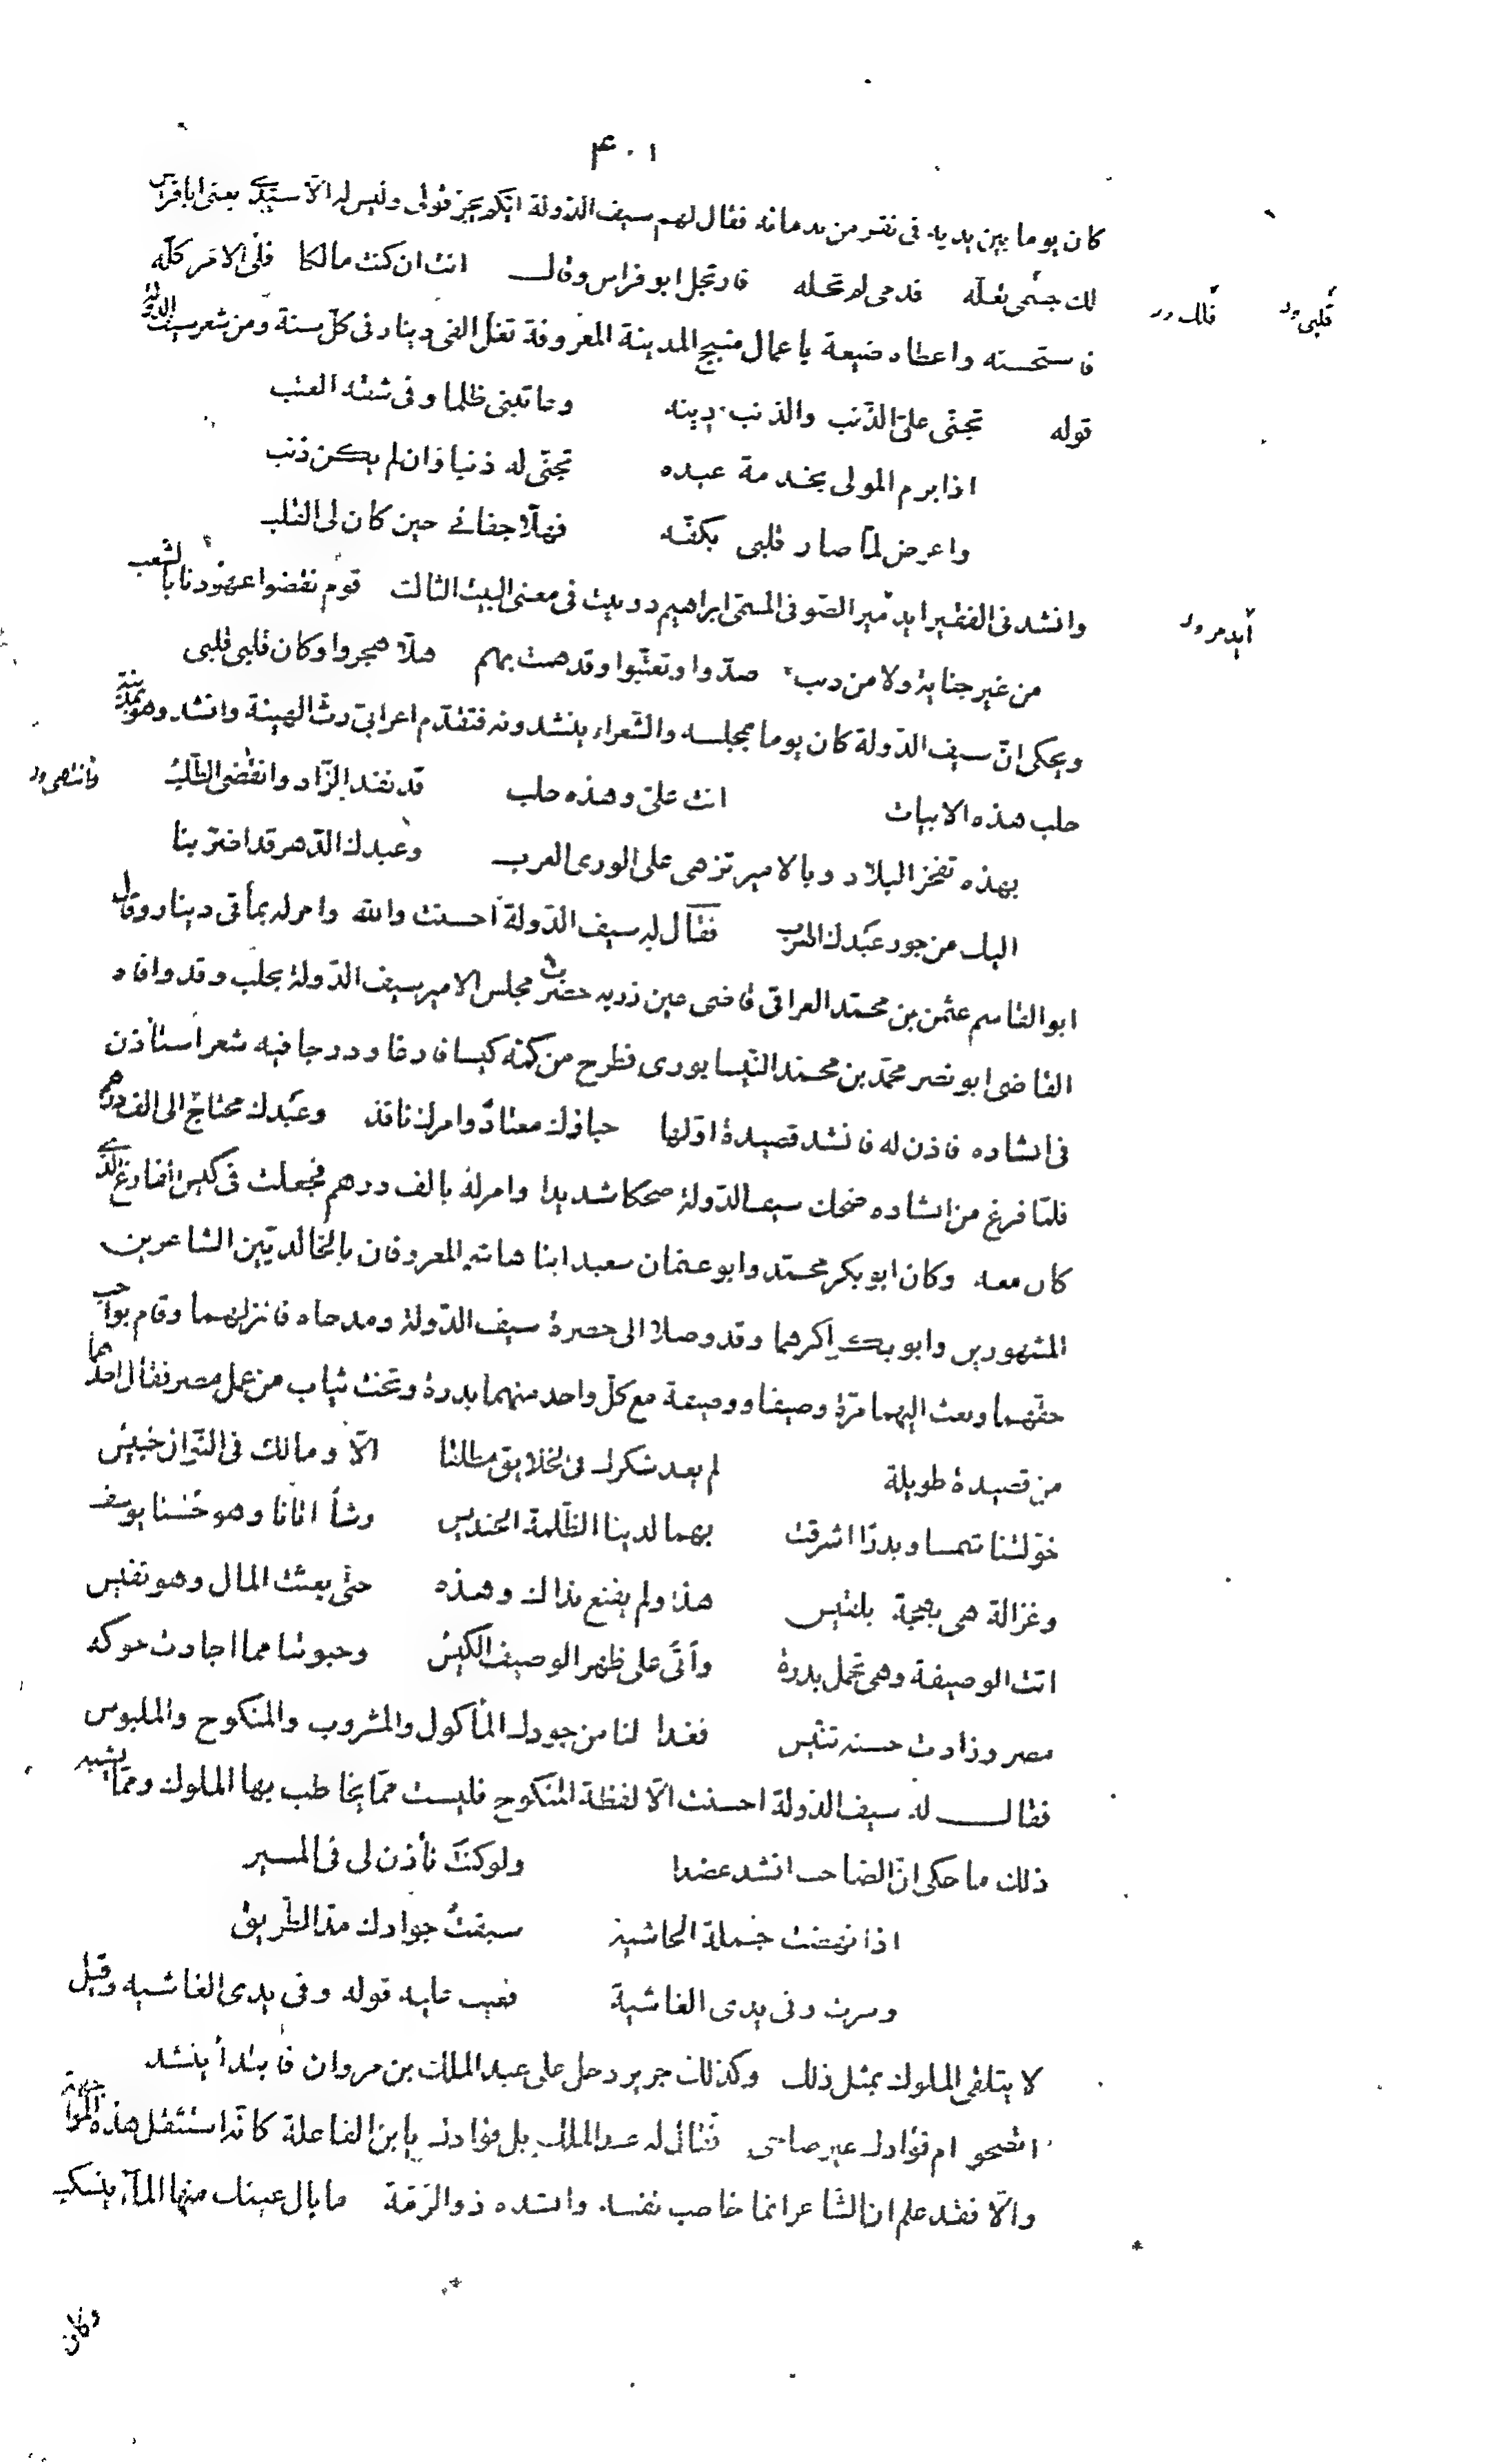 ٤٠١
كان يوما بين يديه فى نفر من ندمائه فقال لهم سيف الدولة ايكم يجيز قولى وليس له الّا سيدى يعنى ابا فراس
لك جسمى تعلّه فدمى لم تحله فارتجل ابو فراس وقال انت ان كنت مالكا فلى الامر كلّه
قلبى ور فلك ور
فاستحسنه واعطاه ضيعة باعمال منبج المدينة المعروفة تغل الفى دينار فى كلّ سنة ومن شعر سيف الدولة
قوله تجنّى علىّ الذّنب والذنب ذنبه وعاتبنى ظلما وفى شقّه العتب
اذا برم المولى بخدمة عبده تجنّى له ذنبا وان لم يكن ذنب
واعرض لمّا صار قلبى بكفّه فهلّا جفانى حين كان لى القلب
وانشدنى الفقير ايدمير الصّوفى المسمّى ابراهيم دوبيت فى معنى البيت الثالث قوم نقضوا عهودنا بالشعب
ايدمر ور
من غير جناية ولا من ذنب صدّوا وتعتّبوا وقد همت بهم هلّا هجروا وكان قلبى قلبى
ويحكى انّ سيف الدّولة كان يوما بمجلسه والشّعراء ينشدونه فتقدّم اعرابى رثّ الهيئة وانشد وهو بمدينة
حلب هذه الابيات انت علىّ وهذه حلب قد نفد الزّاد وانقضى الطّلب
فانتهى ور
بهذه تفخر البلاد وبالامير تزهى على الورى العرب وعبدك الدّهر قد اضرّ بنا
اليك من جور عبدك الهرب فقال له سيف الدّولة احسنت والله وامر له بمأتى دينار وقال
ابو القاسم عثمن بن محمّد العراقى قاضى عين زربه حضرت مجلس الامير سيف الدّولة بحلب وقد وافاه
القاضى ابو نصر محمّد بن محمّد النّيسابورى فطرح من كمّه كيسا فارغا ودرجا فيه شعر استأذن
فى انشاده فاذن له فانشد قصيدة اوّلها حباؤك معتاد وامرك نافذ وعبدك محتاج الى الف درهم
فلمّا فرغ من انشاده ضحك سيف الدّولة ضحكا شديدا وامر له بالف درهم فجعلت فى كيس الفارغ الذى
كان معه وكان ابو بكر محمّد وابو عثمان سعيد ابنا هاشم المعروفان بالخالديّين الشاعرين
المشهورين وابو بكر اكبرهما وقد وصلا الى حضرة سيف الدّولة ومدحاه فانزلهما وقام بواجب
حقّهما وبعث اليهما مرّة وصيفا ووصيفة مع كلّ واحد منهما بدرة وتخت ثياب من عمل مصر فقال احدهما
من قصيدة طويلة لم يعد شكرك فى الخلايق مطلقا الّا ومالك فى النّوال حبيس
خوّلتنا شمسا وبدرا اشرقت بهما لدينا الظّلمة الحنديس رشأ اتانا وهو حسنا يوسف
وغزالة هى بهجة بلقيس هذا ولم يقنع بذاك وهذه حتّى بعثت المال وهو نفيس
اتت الوصيفة وهى تحمل بدرة وأتى على ظهر الوصيف الكيس وحبوتنا مما اجادت حوكه
مصر وزادت حسنه تنّيس فغدا لنا من جودك المأكول والمشروب والمنكوح والملبوس
فقال له سيف الدّولة احسنت الّا لفظة المنكوح فليست ممّا يخاطب بها الملوك وممّا يشبه
ذلك ما حكى انّ الصّاحب انشد عضدا ولو كنت تأذن لى فى المسير
اذا نهضت جملة الحاشية سبقت جوادك مدّ الطّريق
وسرت وفى يدى الغاشية فعيب عليه قوله وفى يدى الغاشيه وقيل
لا يتلقى الملوك بمثل ذلك وكذلك جرير دخل على عبد الملك بن مروان فابتدأ ينشد
اتصحو ام فؤادك غير صاحى فقال له عبد الملك بل فؤادك يا بن الفاعلة كانّه استثقل هذه المواجهة
والّا فقد علم ان الشّاعر انما خاطب نفسه وانشده ذو الرّمّة ما بال عينك منها المآء ينسكب
وكان